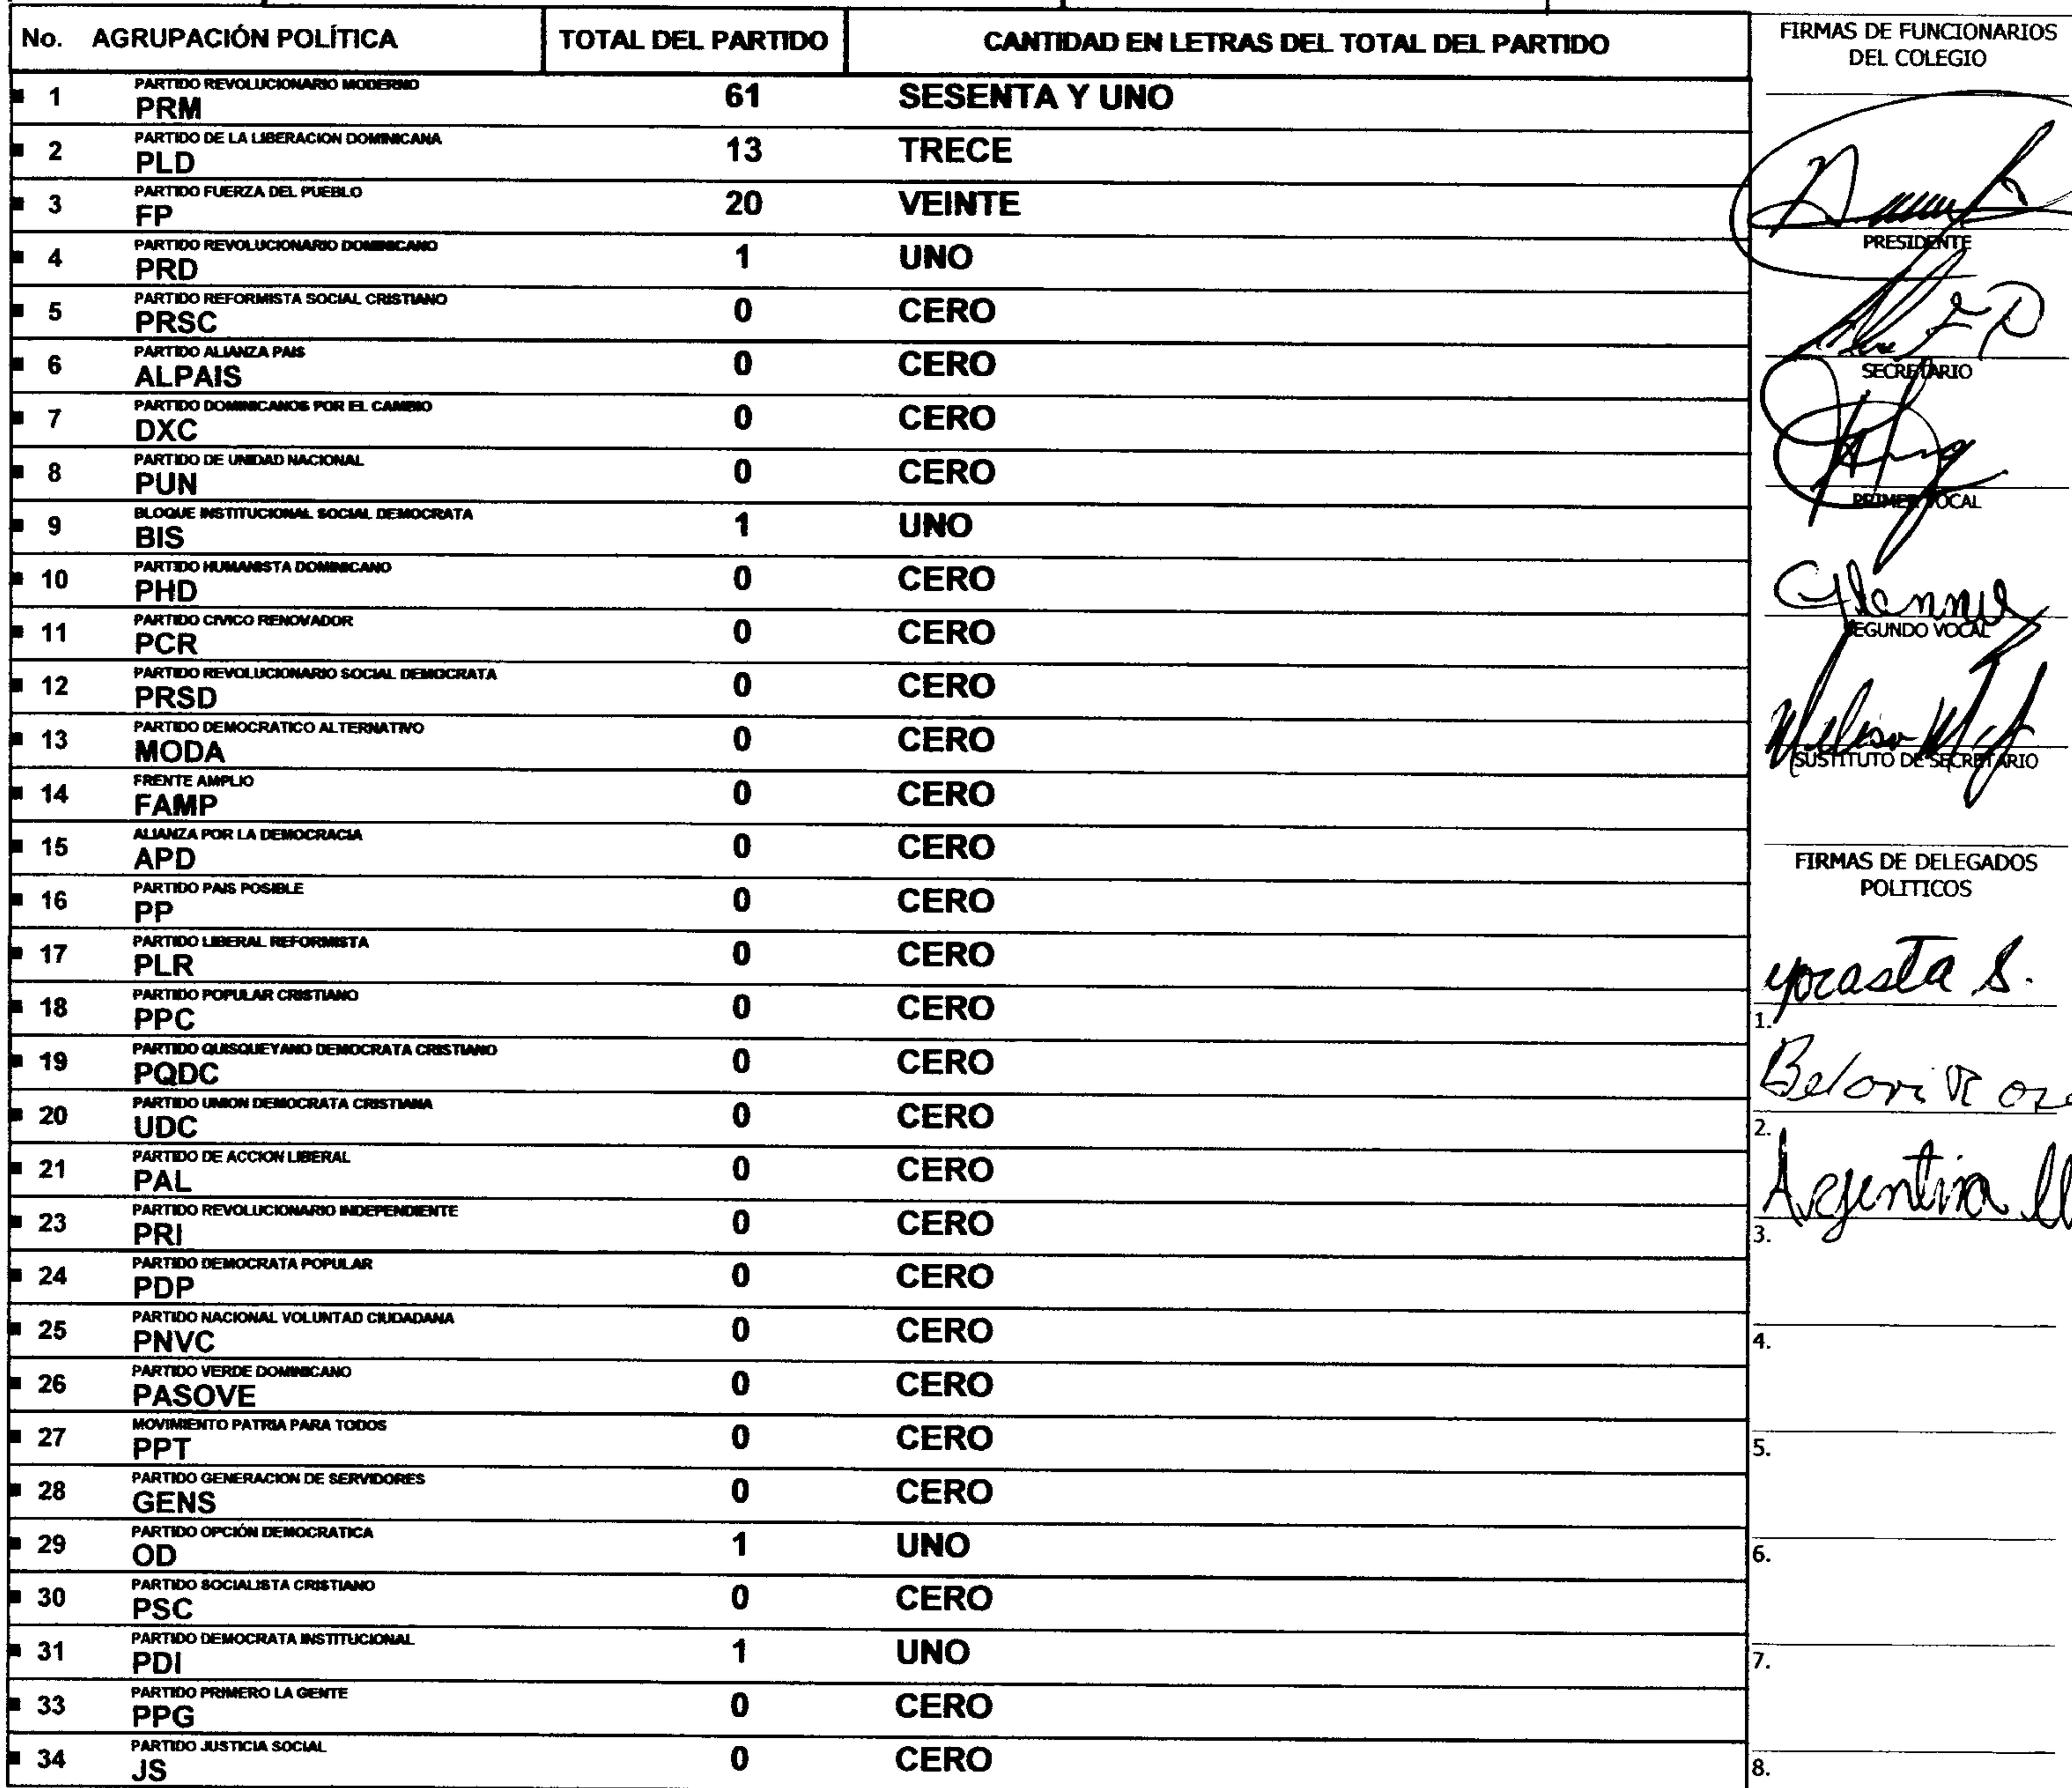 No. AGRUPACIÓN POLÍTICA TOTAL DEL PARTIDO CANTIDAD EN LETRAS DEL TOTAL DEL PARTIDO
PARTIDO REVOLUCIONARIO MODERNO
1 PRM 61 SESENTA Y UNO
PARTIDO DE LA LIBERACION DOMINICANA
2 PLD 13 TRECE
PARTIDO FUERZA DEL PUEBLO
3 FP 20 VEINTE
PARTIDO REVOLUCIONARIO DOMINICANO
4 PRD 1 UNO
PARTIDO REFORMISTA SOCIAL CRISTIANO
5 PRSC 0 CERO
PARTIDO ALIANZA PAIS
6 ALPAIS 0 CERO
PARTIDO DOMINICANOS POR EL CAMBIO
7 DXC 0 CERO
PARTIDO DE UNIDAD NACIONAL
8 PUN 0 CERO
BLOQUE INSTITUCIONAL SOCIAL DEMOCRATA
9 BIS 1 UNO
PARTIDO HUMANISTA DOMINICANO
10 PHD 0 CERO
PARTIDO CIVICO RENOVADOR
11 PCR 0 CERO
PARTIDO REVOLUCIONARIO SOCIAL DEMOCRATA
12 PRSD 0 CERO
PARTIDO DEMOCRATICO ALTERNATIVO
13 MODA 0 CERO
FRENTE AMPLIO
14 FAMP 0 CERO
ALIANZA POR LA DEMOCRACIA
15 APD 0 CERO
PARTIDO PAIS POSIBLE
16 PP 0 CERO
PARTIDO LIBERAL REFORMISTA
17 PLR 0 CERO
PARTIDO POPULAR CRISTIANO
18 PPC 0 CERO
PARTIDO QUISQUEYANO DEMOCRATA CRISTIANO
19 PQDC 0 CERO
PARTIDO UNION DEMOCRATA CRISTIANA
20 UDC 0 CERO
PARTIDO DE ACCION LIBERAL
21 PAL 0 CERO
PARTIDO REVOLUCIONARIO INDEPENDIENTE
23 PRI 0 CERO
PARTIDO DEMOCRATA POPULAR
24 PDP 0 CERO
PARTIDO NACIONAL VOLUNTAD CIUDADANA
25 PNVC 0 CERO
PARTIDO VERDE DOMINICANO
26 PASOVE 0 CERO
MOVIMIENTO PATRIA PARA TODOS
27 PPT 0 CERO
PARTIDO GENERACION DE SERVIDORES
28 GENS 0 CERO
PARTIDO OPCIÓN DEMOCRATICA
29 OD 1 UNO
PARTIDO SOCIALISTA CRISTIANO
30 PSC 0 CERO
PARTIDO DEMOCRATA INSTITUCIONAL
31 PDI 1 UNO
PARTIDO PRIMERO LA GENTE
33 PPG 0 CERO
PARTIDO JUSTICIA SOCIAL
34 JS 0 CERO
FIRMAS DE FUNCIONARIOS
DEL COLEGIO
PRESIDENTE
SECRETARIO
PRIMER VOCAL
SEGUNDO VOCAL
SUSTITUTO DE SECRETARIO
FIRMAS DE DELEGADOS
POLITICOS
yocasta S.
1.
2.
Argentina
3.
4.
5.
6.
7.
8.